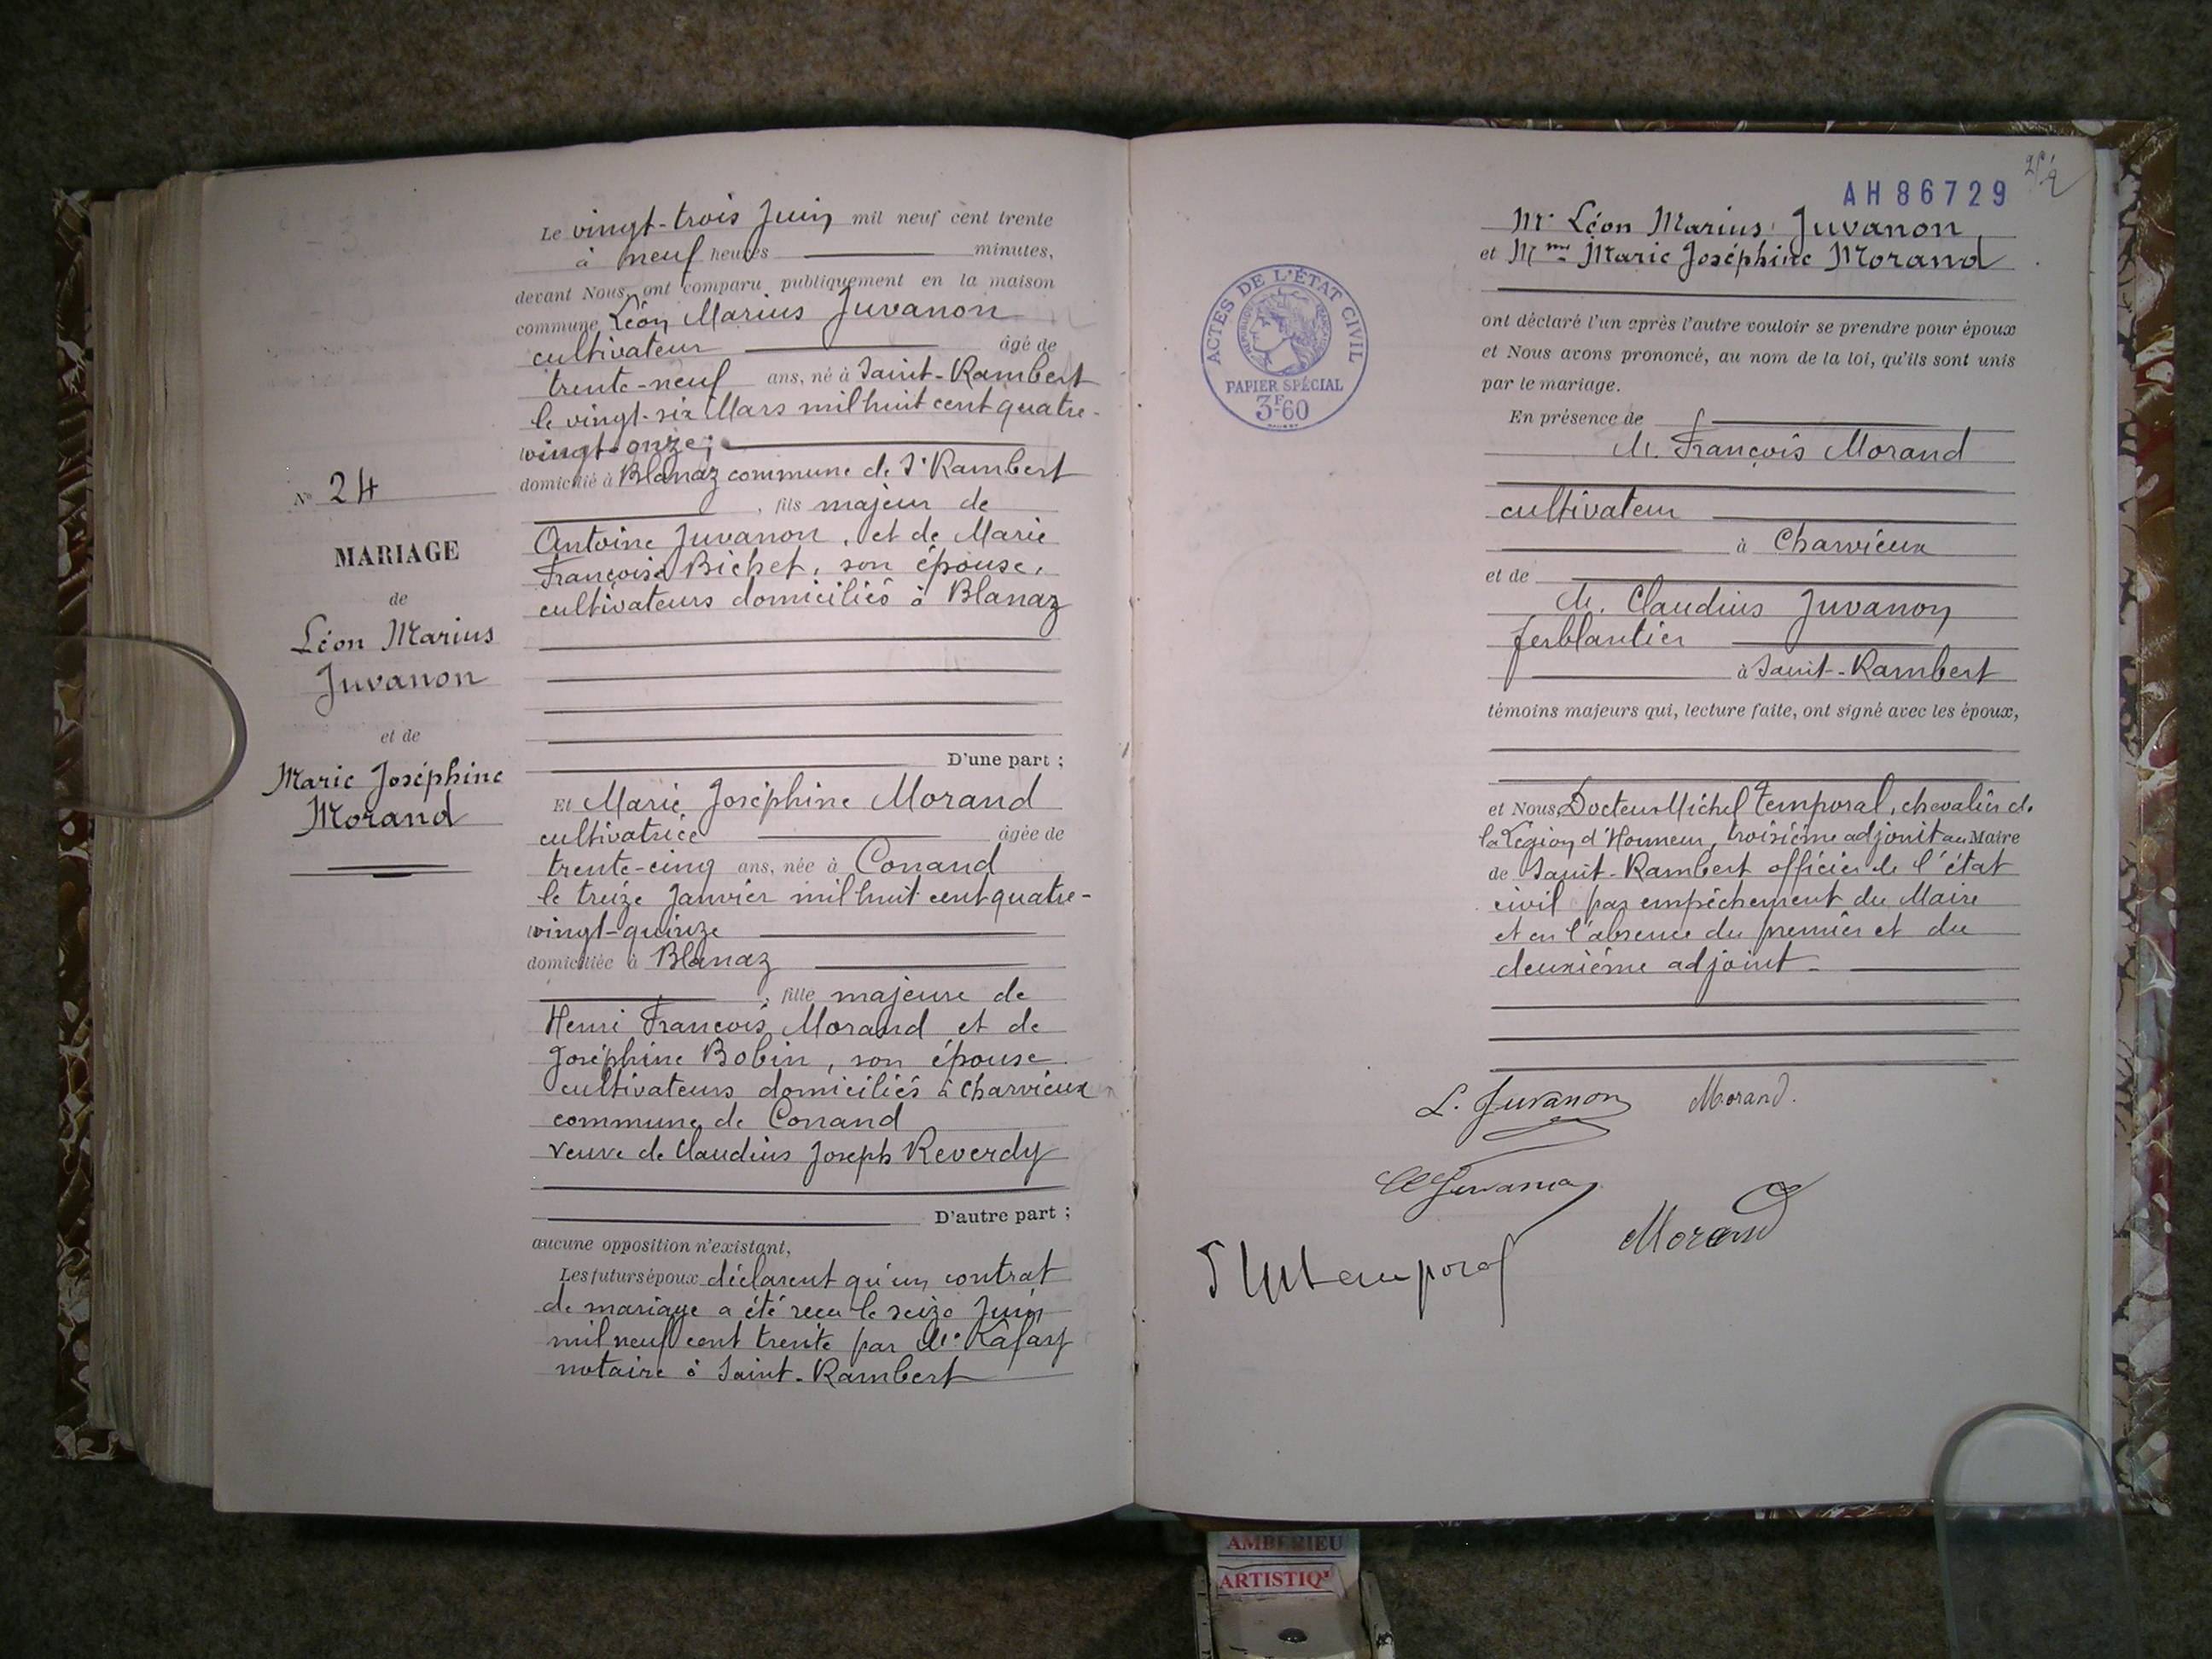 Le vingt-trois Juin mil neuf cent trente
à neuf heures minutes,
devant Nous, ont comparu publiquement en la maison
commune Léon Marius Juvanon
cultivateur âgé de
trente-neuf ans, né à Saint-Rambert
le vingt-six Mars mil huit cent quatre-
vingt-onze;
domicilié à Blanaz commune de St Rambert
, fils majeur de
Antoine Juvanon, et de Marie
Françoise Bichet, son épouse,
cultivateurs domiciliés à Blanaz
D'une part ;
Et Marie Joséphine Morand
cultivatrice âgée de
trente-cinq ans, née à Conand
le treize Janvier mil huit cent quatre-
vingt-quinze
domiciliée à Blanaz
, fille majeure de
Henri François Morand et de
Joséphine Bobin, son épouse
cultivateurs domiciliés à Charvieux
commune de Conand
veuve de Claudius Joseph Reverdy
D'autre part ;
aucune opposition n'existant,
Les futurs époux déclarent qu'un contrat
de mariage a été reçu le seize Juin
mil neuf cent trente par Me
notaire à Saint-Rambert
No 24
MARIAGE
de
Léon Marius
Juvanon
et de
Marie Joséphine
Morand
AH 86729
ACTES DE L'ÉTAT CIVIL
PAPIER SPÉCIAL
3F60
Mr Léon Marius Juvanon
et Mme Marie Joséphine Morand
ont déclaré l'un après l'autre vouloir se prendre pour époux
et Nous avons prononcé, au nom de la loi, qu'ils sont unis
par le mariage.
En présence de
M. François Morand
cultivateur
à Charvieux
et de
M. Claudius Juvanon
ferblantier
à Saint-Rambert
témoins majeurs qui, lecture faite, ont signé avec les époux,
et Nous, Docteur Michel Temporal, chevalier de
la Légion d'Honneur, troisième adjoint au Maire
de Saint-Rambert officier de l'état
civil par empêchement du Maire
et en l'absence du premier et du
deuxième adjoint.
L. Juvanon Morand.
Cl Juvanon
Morand
Temporal
AMBERIEU
ARTISTIQ